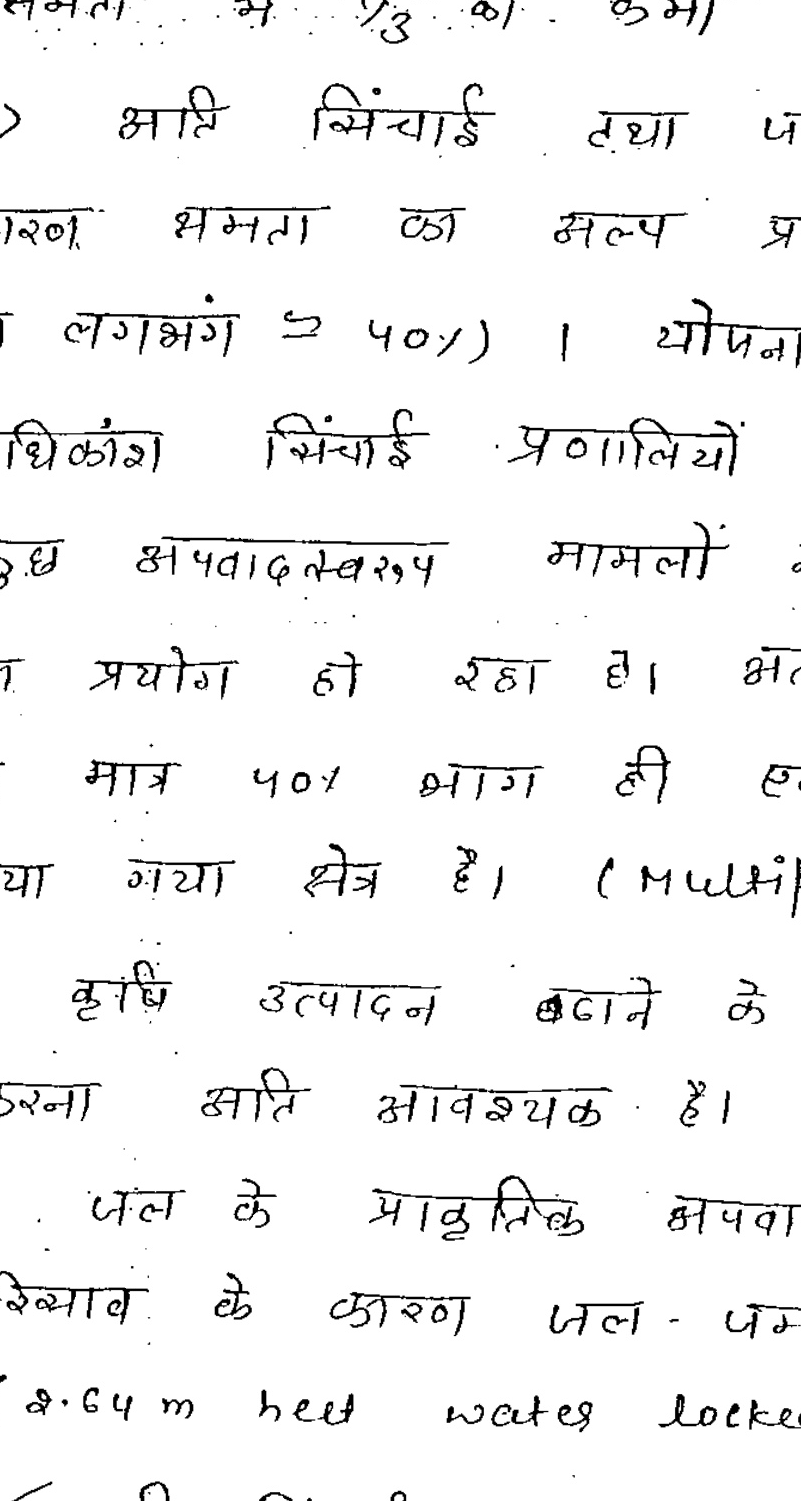 क्षमता में 1/3 की कमी
अति सिंचाई तथा
क्षमता का अल्प प्र
लगभंग ≃ 40%) । योजना
धिकांश सिंचाई प्रणालियों
छ अपवादस्वरुप मामलों
प्रयोग हो रहा है। अत
मात्र 40% भाग ही
या गया क्षेत्र है। (Multi
कृषि उत्पादन बढाने के
करना अति आवश्यक है।
जल के प्राकृतिक अपवा
रिसाव के कारण जल - जम
2.64 m hect water locke